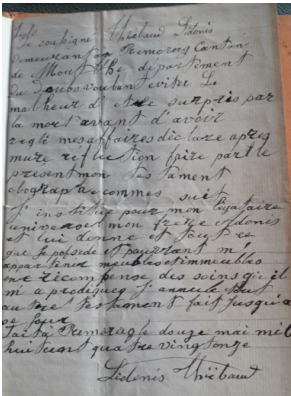 Je soubigné Thiebaud Sidonis
Demeurant a Remoray Canton
de Mouthe departement
du Doubs voulant eviter Le
malheur d'être surpris par
la mort avant d'avoir
regli mes affaires déclare apres
mure reflection faire par le
present mon testament
olographe commes suit
J'institue pour mon Légataire
universel mon frere Adonis
et lui donne et tout ce
que je possede et pourrant m'
appartenir meubles et immeubles
en recompense des soins qu'il
m'a prodigueg J'annule tout
autre testament fait jusqu'a
ce jour
fait a Remoray le douze mai mil
huit cent quatre vingt onze
Sidonis Thiébaud